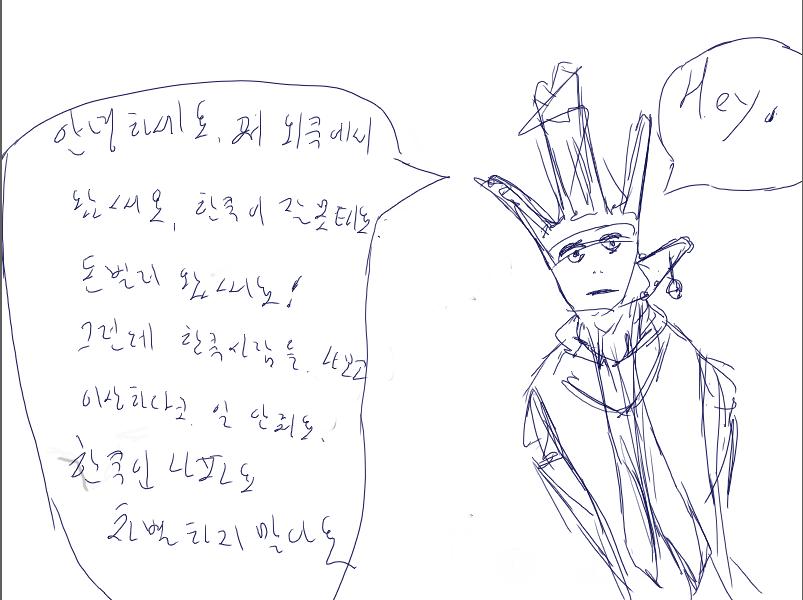 안녕 하세요. 저 외쿡에서
왔써요, 한쿡어 잘 못테요.
돈 벌러 왔써요!
그런데 한쿡사람들. 나보고
이상하다고. 일 안줘요.
한쿡인 나파요
차별하지 말다요
Hey,